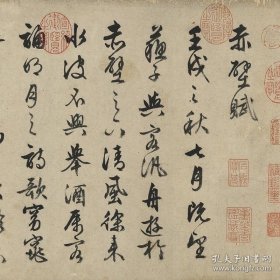 赤壁賦
壬戌之秋七月既望
蘇子與客汎舟遊於
赤壁之下清風徐來
水波不興舉酒屬客
誦明月之詩歌窈窕
孔夫子旧书网